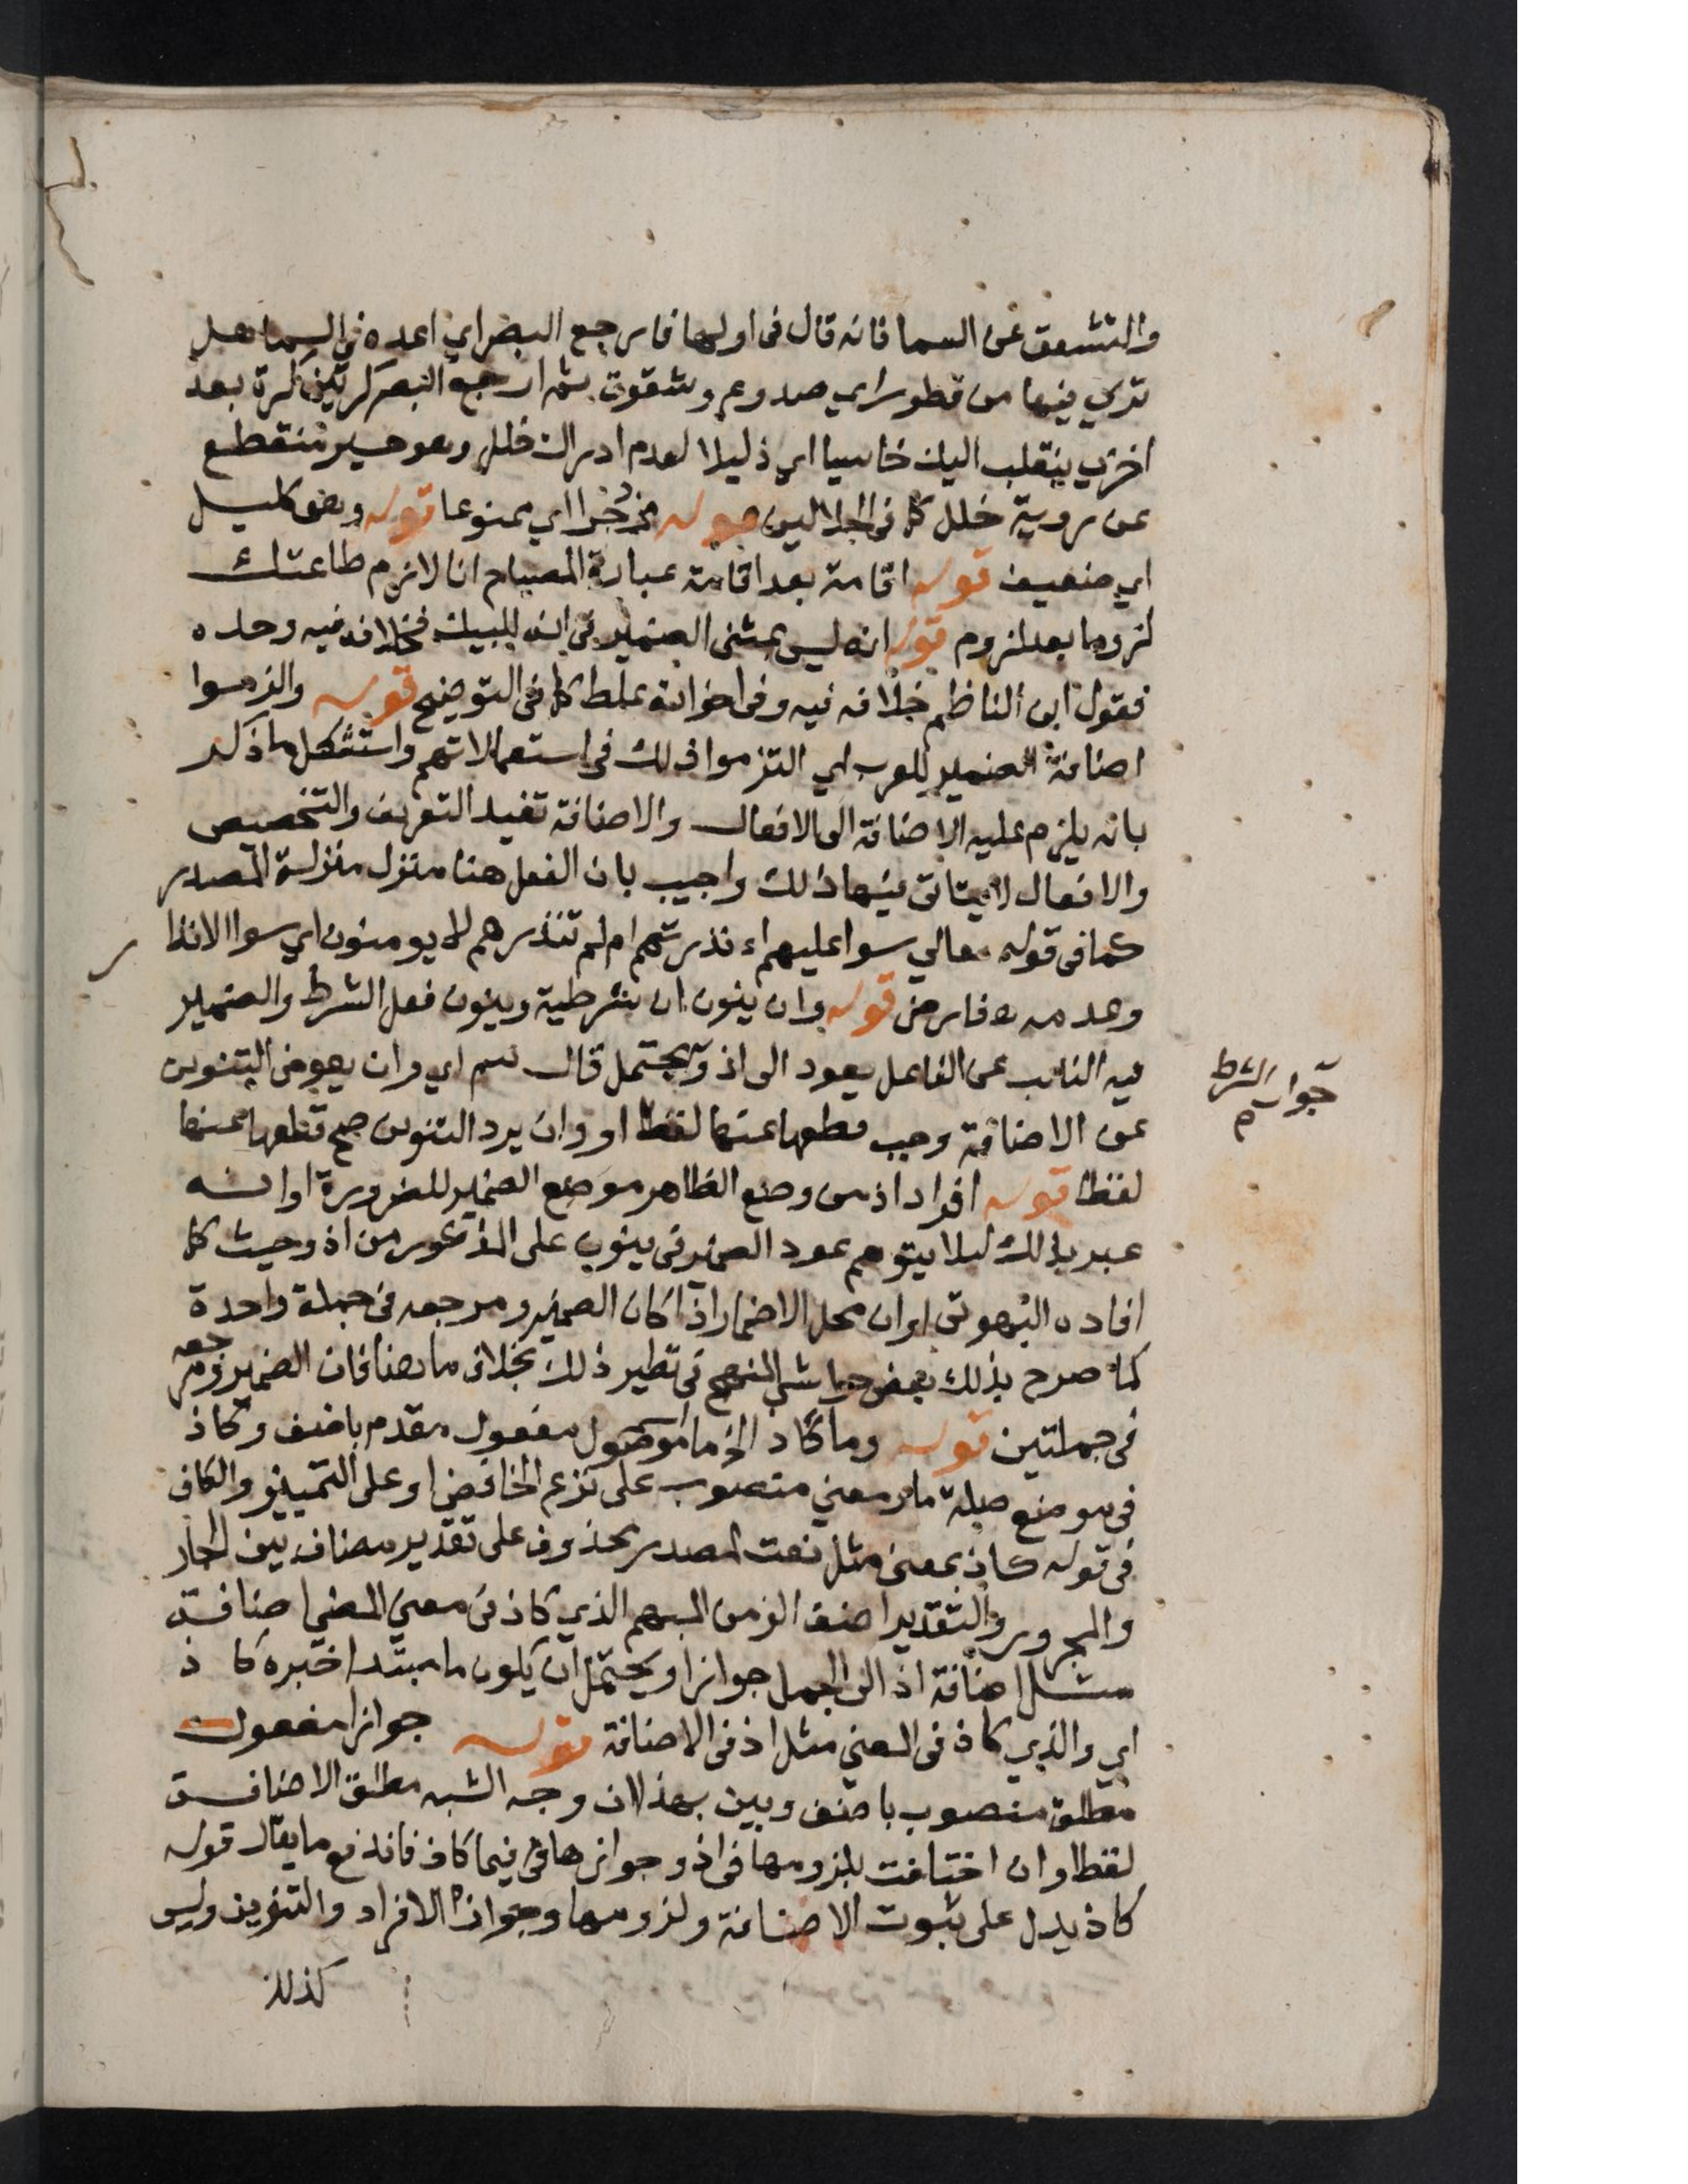 والتشقق عن السما فانه قال فى اولها فارجع البصر اي اعده في السما هل
تري فيها من فطور اي صدوع وشقوق ثم ارجع البصر كرتين كرة بعد
اخري ينقلب اليك خاسيا اي ذليلا لعدم ادراك خلل وهو حسير منقطع
عن روية خلل كما فى الجلالين قوله مزدجرا اي ممنوعا قوله وهو كليل
اي ضعيف قوله اقامة بعد اقامة عبارة المصباح انا لازم طاعتك
لزوما بعد لزوم قوله انه ليس بمثنى الضمير في انه للبيك فخلافه فيه وحده
فقول ابن الناظم خلافه فيه وفى اخواته غلط كما فى التوضيح قوله والزموا
اضافة الضمير للعرب اي التزموا ذلك فى استعمالاتهم واستشكل ما ذكر
بانه يلزم عليه الاضافة الى الافعال والاضافة تفيد التعريف والتخصيص
والافعال لا يتاتى فيها ذلك واجيب بان الفعل هنا منزل منزلة المصدر
كما فى قوله تعالي سوا عليهم اءنذرتهم ام لم تنذرهم لا يومنون اي سوا الانذا
ر
وعدمه فارضى قوله وان ينون ان شرطية وينون فعل الشرط والضمير
فيه النايب عن الفاعل يعود الى اذ ويحتمل قال سم اي وان يعوض التنوين
جواب الشرط م
عن الاضافة وجب قطعها عنها لفظا او وان يرد التنوين صح قطعها عنها
لفظا قوله افراد اذ من وضع الظاهر موضع الضمير للضرورة او انه
عبر بذلك ليلا يتوهم عود الضمير فى ينون على المذكور من اذ وحيث كما
افاده البهوتى او ان محل الاضمار اذا كان الضمير ومرجعه فى جملة واحدة
كما صرح بذلك بعض حواشي المنهج فى نظير ذلك بخلاف ما هنا فان الضمير ومرجعه
فى جملتين قوله وما كاذ الخ ما اسم موصول مفعول مقدم باضف وكاذ
فى موضع صلة ما ومعني منصوب على نزع الخافض او على التمييز والكاف
فى قوله كاذ بمعنى مثل نعت لمصدر محذوف على تقدير مضاف بين الجار
والمجرور والتقدير اضف الزمن المبهم الذي كاذ فى معني المضي اضافة
مثل اضافة اذ الى الجمل جوازا ويحتمل ان يكون ما مبتدا خبره كاذ
اي والذي كاذ فى المعني مثل اذ فى الاضافة قوله جوازا مفعول
مطلق منصوب باضف وبين بهذا ان وجه الشبه مطلق الاضافة
لفظا وان اختلفت بلزومها فى اذ وجوازها فى فيما كاذ فاندفع ما يقال قوله
كاذ يدل على ثبوت الاضافة ولزومها وجواز الافراد والتنوين وليس
كذلك